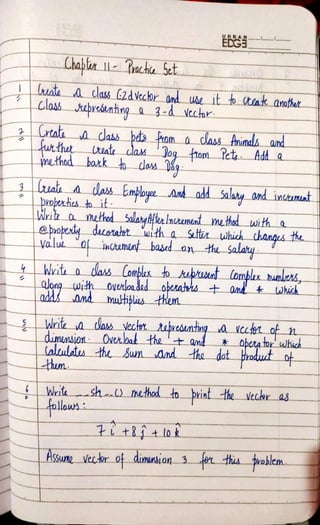 URBAN
EDGE
Chapter 11 - Practice Set
1 Create a class C2dVector and use it to create another
class representing a 3-d vector.
2 Create a class pets from a class Animals and
further create class Dog from Pets. Add a
method bark to class Dog
3 Create a class Employee and add Salary and increment
properties to it.
Write a method SalaryAfterIncrement method with a
@property decorator with a setter which changes the
value of increment based on the salary.
4 Write a class Complex to represent Complex numbers,
along with overloaded operators + and * which
adds and multiplies them.
5 Write a class vector representing a vector of n
dimension. Overload the + and * operator which
Calculates the sum and the dot product of
them.
6 Write __str__() method to print the vector as
follows:
7 î + 8 ĵ + 10 k̂
Assume vector of dimension 3 for this problem.